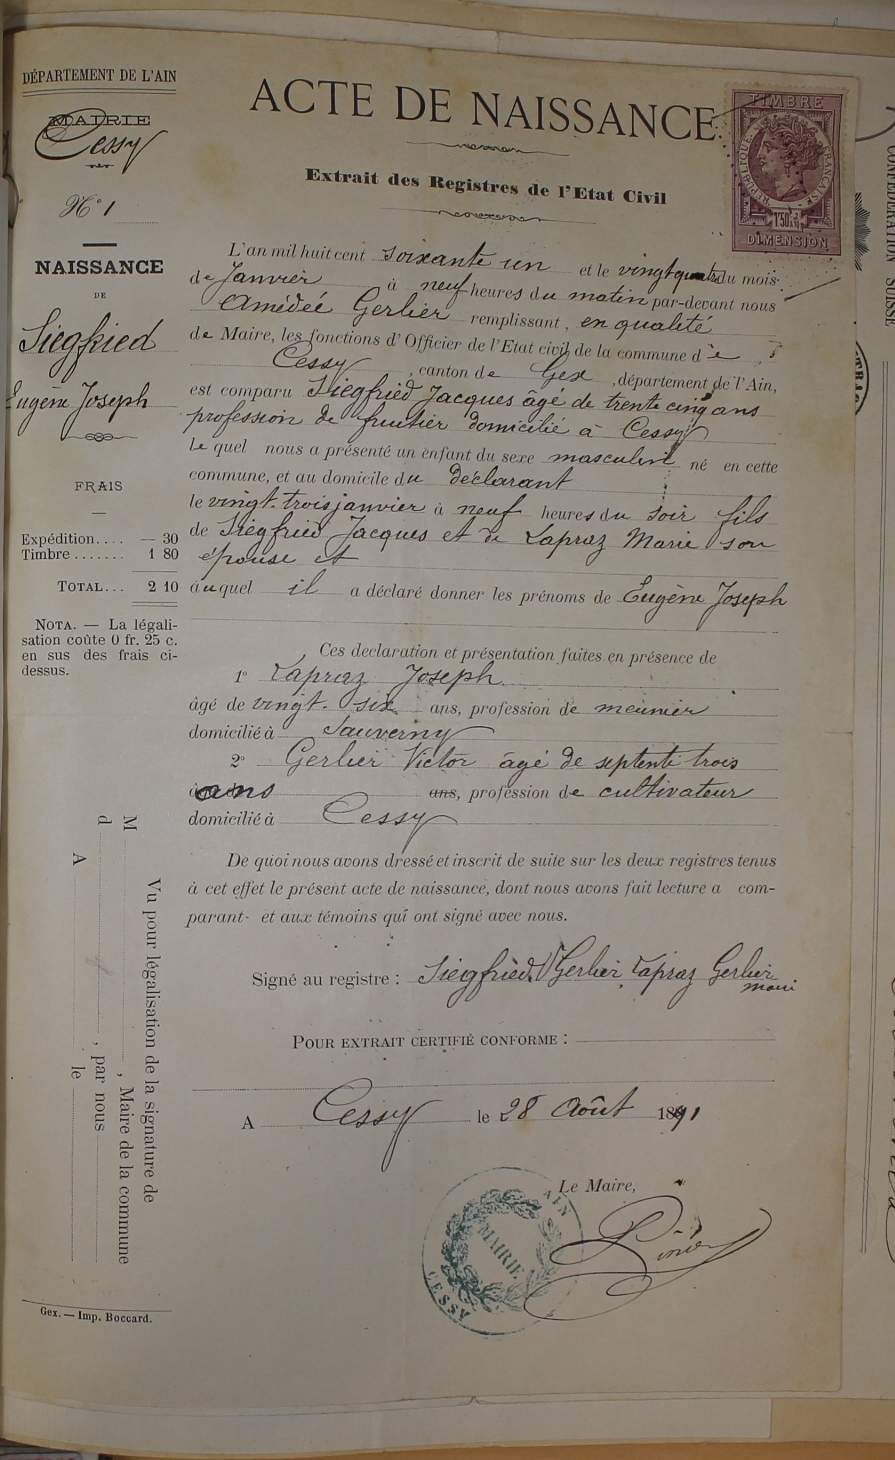 DÉPARTEMENT DE L'AIN
MAIRIE
Cessy
N° 1
NAISSANCE
DE
Siegfried
Eugène Joseph
FRAIS
Expédition.... — 30
Timbre....... 1 80
TOTAL... 2 10
NOTA. — La légali-
sation coûte 0 fr. 25 c.
en sus des frais ci-
dessus.
Vu pour légalisation de la signature de
M , Maire de la commune
d , par nous
A le
Gex. — Imp. Boccard.
ACTE DE NAISSANCE
Extrait des Registres de l'Etat Civil
TIMBRE
RÉPUBLIQUE FRANÇAISE
1F50c
DIMENSION
L'an mil huit cent soixante un et le vingt quatre du mois
de Janvier à neuf heures du matin par-devant nous
Amédée Gerlier remplissant, en qualité
de Maire, les fonctions d'Officier de l'Etat civil de la commune de
Cessy, canton de Gex, département de l'Ain,
est comparu Siegfried Jacques âgé de trente cinq ans
profession de fruitier domicilié à Cessy
le quel nous a présenté un enfant du sexe masculin né en cette
commune, et au domicile du déclarant
le vingt-trois janvier à neuf heures du soir fils
de Siegfried Jacques et de Lapraz Marie son
épouse et
auquel il a déclaré donner les prénoms de Eugène Joseph
Ces declaration et présentation faites en présence de
1° Lapraz Joseph
âgé de vingt-six ans, profession de meunier
domicilié à Sauverny
2° Gerlier Victor âgé de septente trois
ans ans, profession de cultivateur
domicilié à Cessy
De quoi nous avons dressé et inscrit de suite sur les deux registres tenus
à cet effet le présent acte de naissance, dont nous avons fait lecture a com-
parant- et aux témoins qui ont signé avec nous.
Signé au registre : Siegfried V Gerlier Lapraz Gerlier
POUR EXTRAIT CERTIFIÉ CONFORME :
A Cessy le 28 Août 1891
Le Maire,
AIN
MAIRIE
CESSY
CONFÉDÉRATION SUISSE